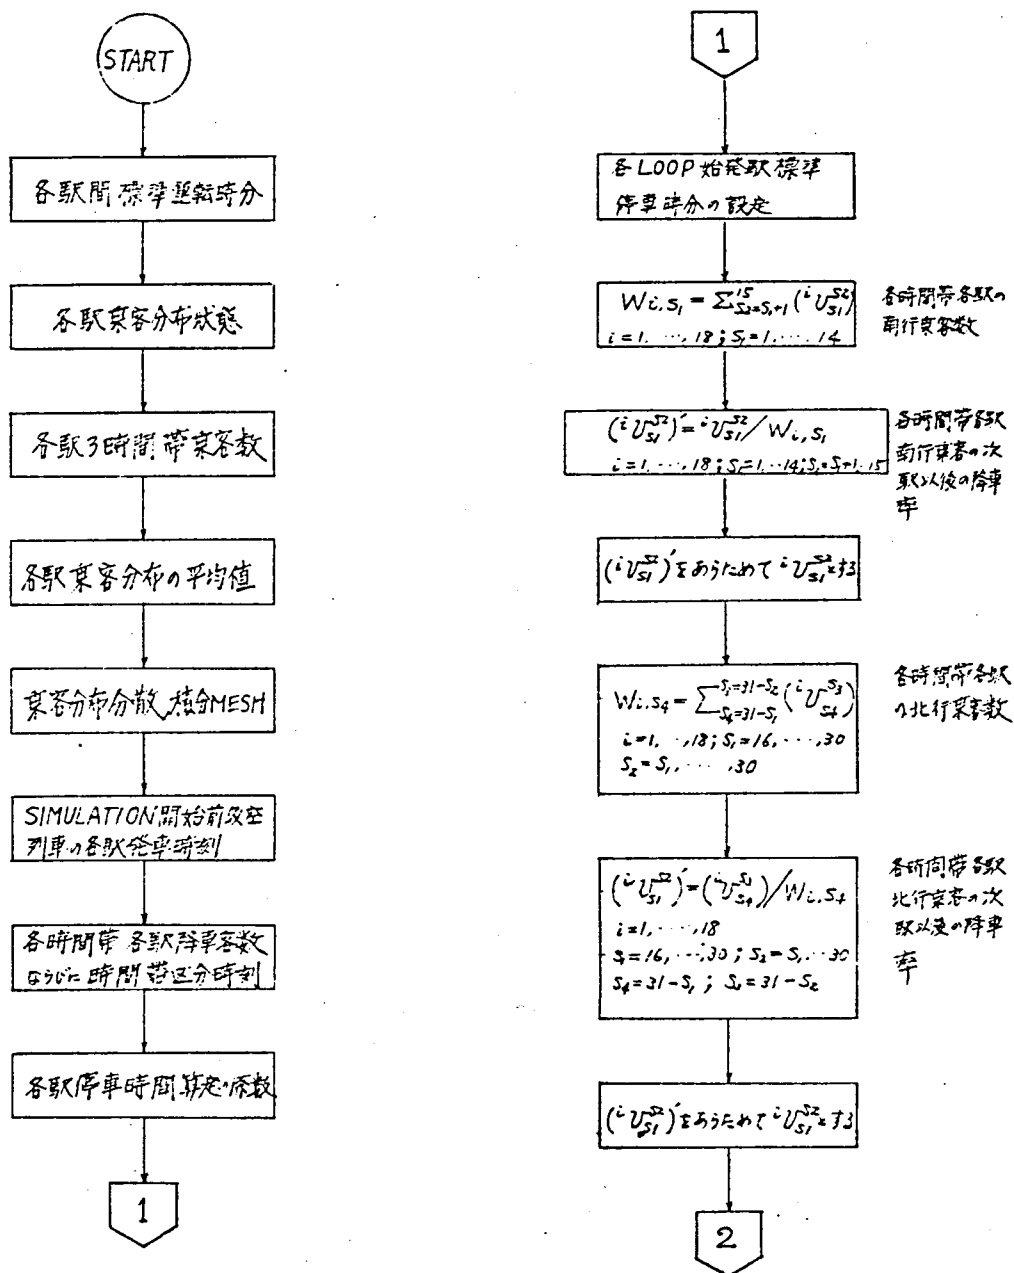 START
各駅間標準運転時分
各駅乗客分布状態
各駅3時間帯乗客数
各駅乗客分布の平均値
乗客分布分散、積分MESH
SIMULATION開始前設空
列車の各駅発車時刻
各時間帯各駅降車客数
ならびに時間帯区分時刻
各駅停車時間算定の係数
1
1
各LOOP始発駅標準
停車時分の設定
Wi,S₁ = Σ_{S₂=S₁+1}^{15} (ⁱU_{S1}^{S2})
i=1,‥‥,18;S₁=1,‥‥,14
各時間帯各駅の
南行乗客数
(ⁱU_{S1}^{S2})′=ⁱU_{S1}^{S2}/Wi,S₁
i=1,‥‥,18;S₁=1,‥14;S₂=S₁+1‥15
各時間帯各駅
南行乗客の次
駅以後の降車
率
(ⁱU_{S1}^{S2})′をあらためてⁱU_{S1}^{S2}とする
Wi,S₄ = Σ_{S₄=31-S₁}^{S₃=31-S₂} (ⁱU_{S4}^{S3})
i=1,‥‥,18;S₁=16,‥‥,30
S₂=S₁,‥‥,30
各時間帯各駅
の北行乗客数
(ⁱU_{S1}^{S2})′=(ⁱU_{S4}^{S3})/Wi,S₄
i=1,‥‥,18
S₁=16,‥‥,30;S₂=S₁‥30
S₄=31-S₁;S₃=31-S₂
各時間帯各駅
北行乗客の次
駅以後の降車
率
(ⁱU_{S1}^{S2})′をあらためてⁱU_{S1}^{S2}とする
2